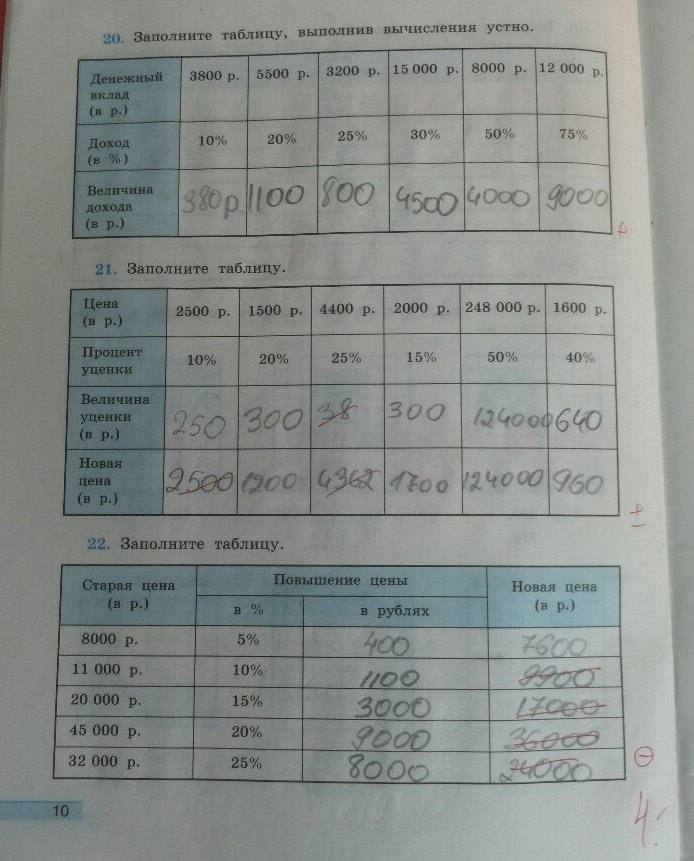 20. Заполните таблицу, выполнив вычисления устно.
Денежный вклад (в р.) 3800 р. 5500 р. 3200 р. 15 000 р. 8000 р. 12 000 р.
Доход (в %) 10% 20% 25% 30% 50% 75%
Величина дохода (в р.) 380р. 1100 800 4500 4000 9000
+
21. Заполните таблицу.
Цена (в р.) 2500 р. 1500 р. 4400 р. 2000 р. 248 000 р. 1600 р.
Процент уценки 10% 20% 25% 15% 50% 40%
Величина уценки (в р.) 250 300 38 300 124000 640
Новая цена (в р.) 2500 1200 4362 1700 124000 960
±
22. Заполните таблицу.
Старая цена (в р.) Повышение цены Новая цена (в р.)
в % в рублях
8000 р. 5% 400 7600
11 000 р. 10% 1100 9900
20 000 р. 15% 3000 17000
45 000 р. 20% 9000 36000
32 000 р. 25% 8000 24000
10
4.